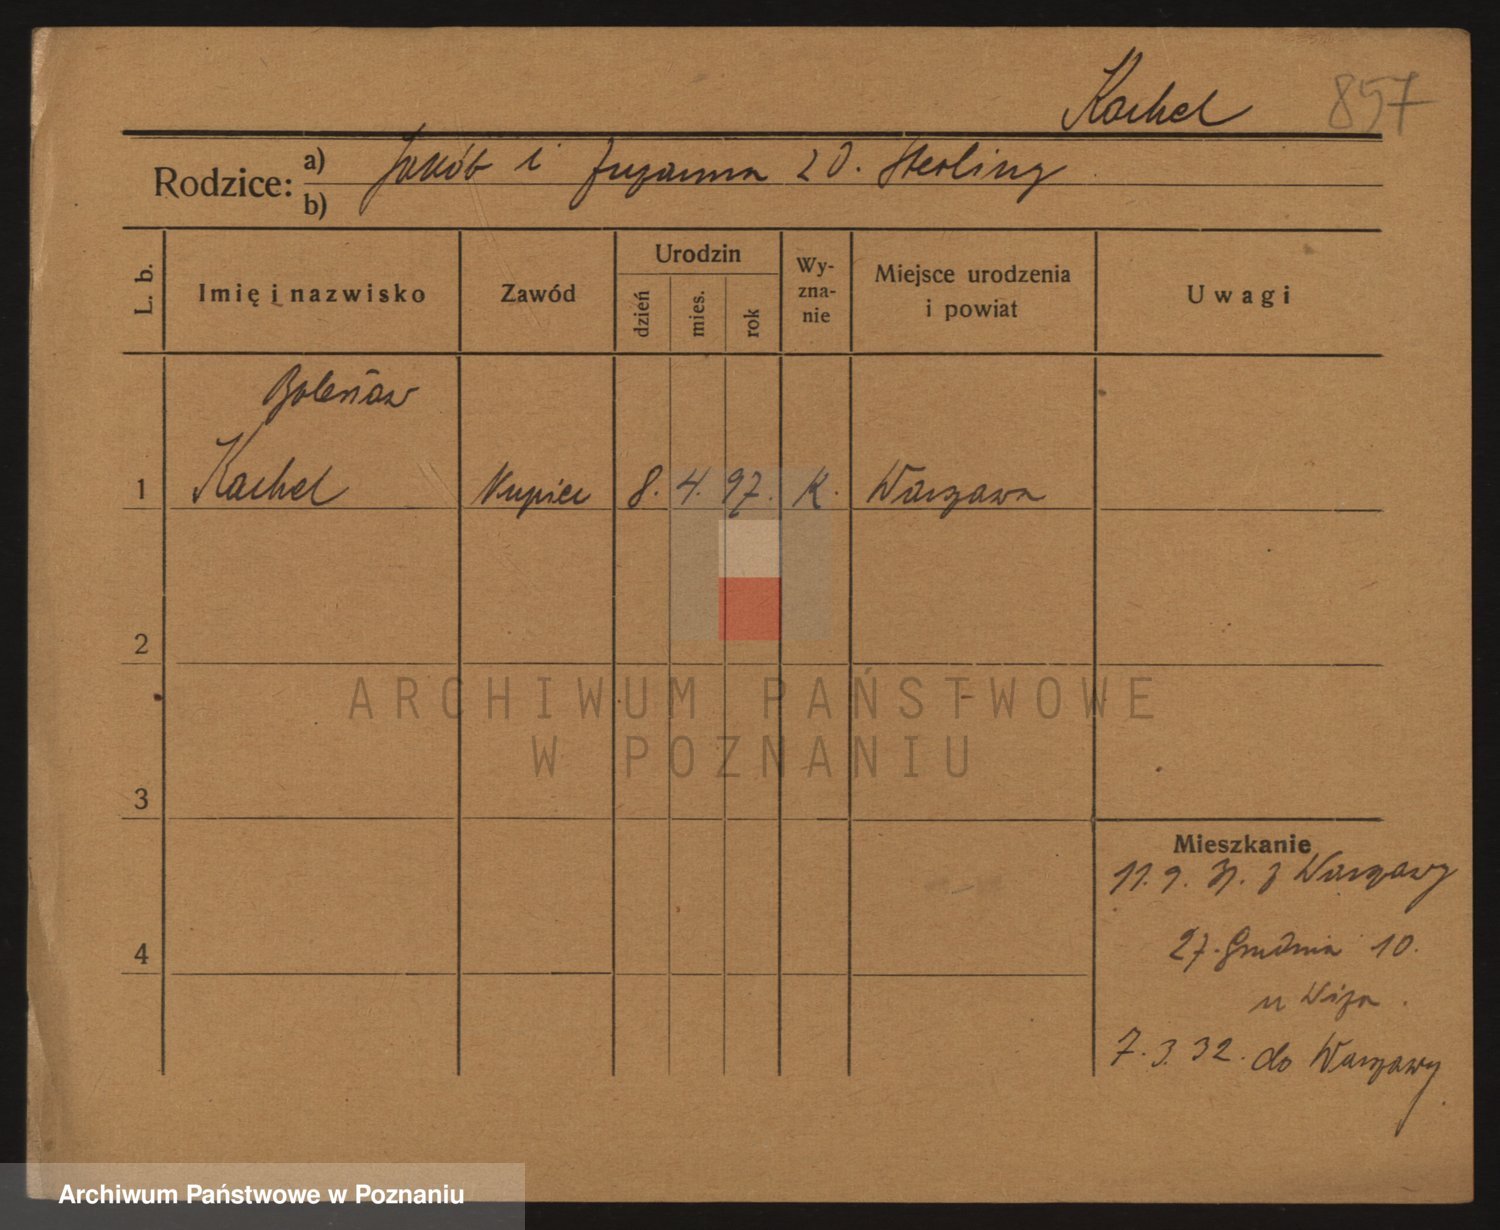 Kachel 857
Rodzice: a) Jakób i Zuzanna z d. Sterling
b)
L. b. Imię i nazwisko Zawód Urodzin dzień mies. rok Wyznanie Miejsce urodzenia i powiat Uwagi
Bolesław
1 Kachel Kupiec 8. 4. 97. K. Warszawa
2
3
4
Mieszkanie
11. 9. 31. z Warszawy
27. Grudnia 10.
u
7. 3. 32. do Warszawy
ARCHIWUM PAŃSTWOWE
W POZNANIU
Archiwum Państwowe w Poznaniu